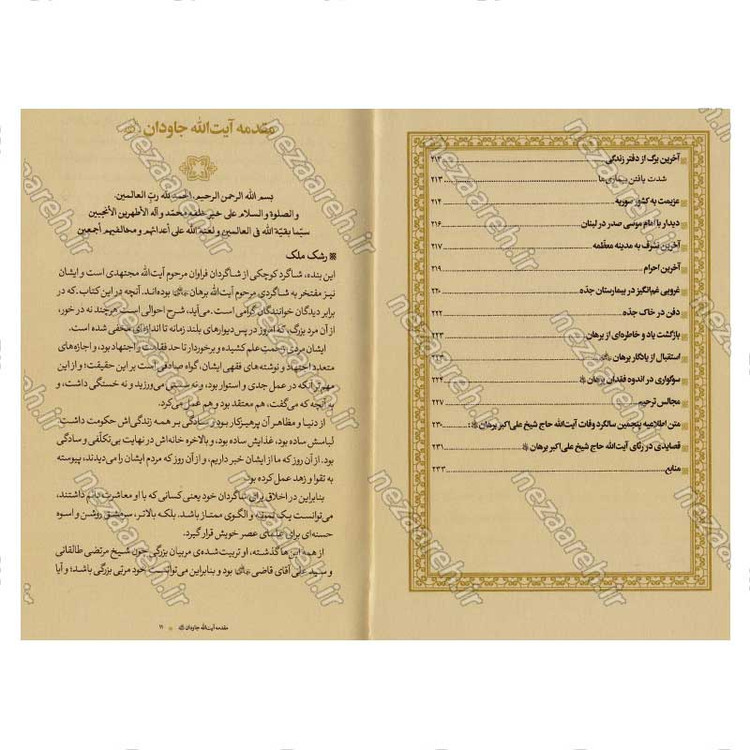 آخرین برگ از دفتر زندگی ۲۱۳
شدت یافتن بیماری‌ها ۲۱۳
عزیمت به کشور سوریه ۲۱۴
دیدار با امام موسی صدر در لبنان ۲۱۶
آخرین تشرف به مدینه معظّمه ۲۱۷
آخرین احرام ۲۱۹
غروبی غم‌انگیز در بیمارستان جدّه ۲۲۰
دفن در خاک جدّه ۲۲۲
بازگشت یاد و خاطره‌ای از برهان
استقبال از یادگار برهان ۲۲۳
سوگواری در اندوه فقدان برهان ۲۲۴
مجالس ترحیم ۲۲۷
متن اطلاعیه پنجمین سالگرد وفات آیت‌الله حاج شیخ علی‌اکبر برهان: ۲۳۰
قصایدی در رثای آیت‌الله حاج شیخ علی‌اکبر برهان ۲۳۱
منابع ۲۳۳
مقدمه آیت‌الله جاودان
بسم الله الرحمن الرحیم، الحمدلله ربّ العالمین
و الصلوة و السلام علی خیر خلقه محمّد و آله الأطهرین الأنجبین
سیّما بقیّة الله فی العالمین و لعنة الله علی أعدائهم و مخالفیهم أجمعین
رشک ملک
این بنده، شاگرد کوچکی از شاگردان فراوان مرحوم آیت‌الله مجتهدی است و ایشان
نیز مفتخر به شاگردی مرحوم آیت‌الله برهان بوده‌اند. آنچه در این کتاب، که در
برابر دیدگان خوانندگان گرامی است، می‌آید، شرح احوالی است هرچند نه در خور،
از آن مرد بزرگ، که امروز در پس دیوارهای بلند زمانه تا اندازه‌ای مخفی شده است.
ایشان مردی زحمتِ علم کشیده و برخوردار تا حد فقاهت و اجتهاد بود، و اجازه‌های
متعدد اجتهاد و نوشته‌های فقهی ایشان، گواه صادقی است بر این حقیقت؛ و از این
مهم‌تر آنکه در عمل جدی و استوار بود، و نه سستی می‌ورزید و نه خستگی داشت، و
به آنچه که می‌گفت، هم معتقد بود و هم عمل می‌کرد.
از دنیا و مظاهر آن پرهیزکار بود، و سادگی بر همه زندگی‌اش حکومت داشت.
لباسش ساده بود، غذایش ساده بود، و بالاخره خانه‌اش در نهایت بی‌تکلّفی و سادگی
بود. از آن روز که ما از ایشان خبر داریم، و از آن روز که مردم ایشان را می‌دیدند، پیوسته
به تقوا و زهد عمل کرده بود.
بنابراین در اخلاق برای شاگردان خود یعنی کسانی که با او معاشرت دائم داشتند،
می‌توانست یک نمونه و الگوی ممتاز باشد. بلکه بالاتر، سرمشق روشن و اسوه
حسنه‌ای برای علمای عصر خویش قرار گیرد.
از همه این‌ها گذشته، او تربیت‌شده‌ی مربیان بزرگی چون شیخ مرتضی طالقانی
و سید علی آقای قاضی بود و بنابراین می‌توانست خود مربّی بزرگی باشد؛ و آیا
مقدمه آیت‌الله جاودان ۱۱
nezaareh.ir